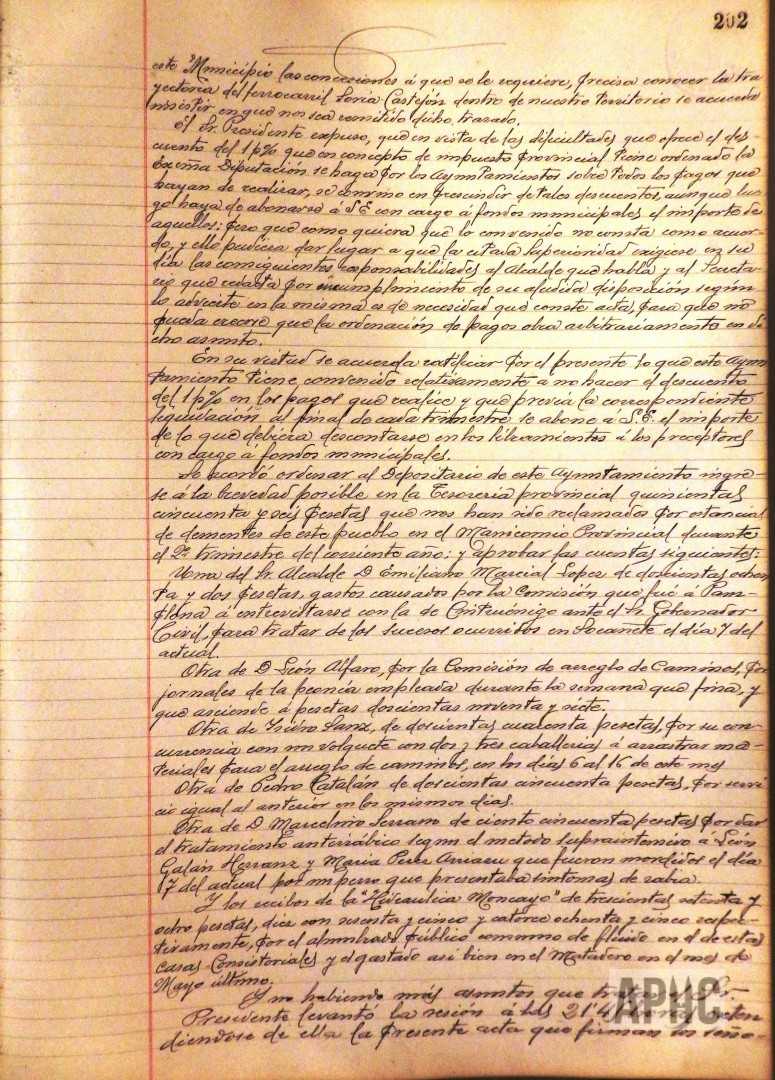 202
este Municipio las concesiones á que se le requiere, precisa conocer la tra
yectoria del ferrocarril Soria Castejón dentro de nuestro territorio se acuerda
insistir en que nos sea remitido dicho trazado.
El Sr. Presidente expuso, que en vista de las dificultades que ofrece el des-
cuento del 1 p% que en concepto de impuesto provincial tiene ordenado la
Excma Diputación se haga por los Ayuntamientos sobre todos los pagos que
hayan de realizar, se convino en prescindir de tales descuentos, aunque lue-
go haya de abonarse á S.E. con cargo á fondos municipales el importe de
aquellos: pero que como quiera que lo convenido no consta como acuer-
do, y ello pudiera dar lugar a que la citada Superioridad exigiese en su
dia las consiguientes responsabilidades al Alcalde que habla y al Secreta-
rio que redacta por incumplimiento de su aludida disposición segun
lo advierte en la misma es de necesidad que conste acta, para que no
pueda creerse que la ordenación de pagos obra arbitrariamente en di
cho asunto.
En su virtud se acuerda ratificar por el presente lo que este Ayun
tamiento tiene convenido relativamente a no hacer el descuento
del 1 p% en los pagos que realice y que previa la correspondiente
liquidación al final de cada trimestre se abone á S.E. el importe
de lo que debiera descontarse en los libramientos á los preceptores
con cargo a fondos municipales.
Se acordó ordenar al Depositario de este Ayuntamiento ingre-
se á la brevedad posible en la Tesoreria provincial quinientas
cincuenta y seis pesetas que nos han sido reclamados por estancias
de dementes de este pueblo en el Manicomio Provincial durante
el 2º trimestre del corriente año: y aprobar las cuentas siguientes:
Una del Sr. Alcalde D Emiliano Marcial Lopez de doscientas ochen
ta y dos pesetas, gastos causados por la Comisión que fué á Pam-
plona á entrevistarse con la de Cintruénigo ante el Sr. Gobernador
Civil, para tratar de los sucesos ocurridos en el día 7 del
actual.
Otra de D León Alfaro, por la Comisión de arreglo de Caminos, por
jornales de la peonia empleada durante la semana que fina, y
que asciende á pesetas doscientas noventa y siete.
Otra de Isidro Sanz, de doscientas cuarenta pesetas, por su con-
currencia con un volquete con dos y tres caballerias á arrastrar ma-
teriales para el arreglo de caminos, en los dias 6 al 16 de este mes
Otra de Pedro Catalán de doscientas cincuenta pesetas, por servi
cio igual al anterior en los mismos dias.
Otra de D Marcelino Serrano de ciento cincuenta pesetas por dar
el tratamiento antirrábico segun el metodo supraintensivo á León
Galán Herranz y Maria Perez que fueron mordidos el día
7 del actual por un perro que presentaba sintomas de rabia.
Y los recibos de la "Hidraulica Moncayo" de trescientas setenta y
ocho pesetas, diez con sesenta y cinco y catorce ochenta y cinco respec-
tivamente, por el alumbrado público consumo de fluido en el de estas
casas Consistoriales y el gastado asi bien en el Matadero en el mes de
Mayo último.
Y no habiendo más asuntos que tratar el Sr.
Presidente levantó la sesión á las 21'4 horas exten
diendose de ella la presente acta que firman los seño-
APHC